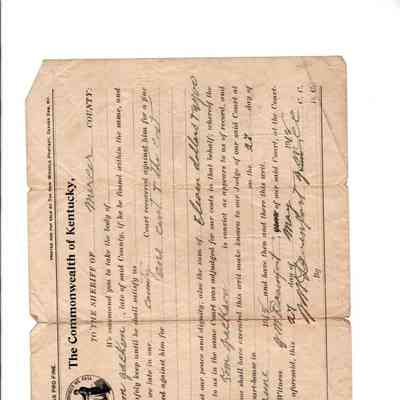 PRINTED AND FOR SALE BY THE
The Commonwealth of Kentucky,
TO THE SHERIFF OF Mercer COUNTY:
We command you to take the body of
late of said County, if he be found within the same, and
safely keep until he shall satisfy us
County Court recovered against him for a fine
we late in our
one cent & the cost
against him for
our peace and dignity; also the sum of Eleven dollars &
to us in the same Court was adjudged for our costs in that behalf; whereof the
Jackson is convict as appears to us of record, and
shall have executed this writ make known to our Judge of our said Court at
Court-house in on the 22 day of
June 1915, and have then and there this writ.
Witness of our said Court, at the Court-
aforesaid, this 27 day of May 191
C. C.
By D. C.
PRO FINE.